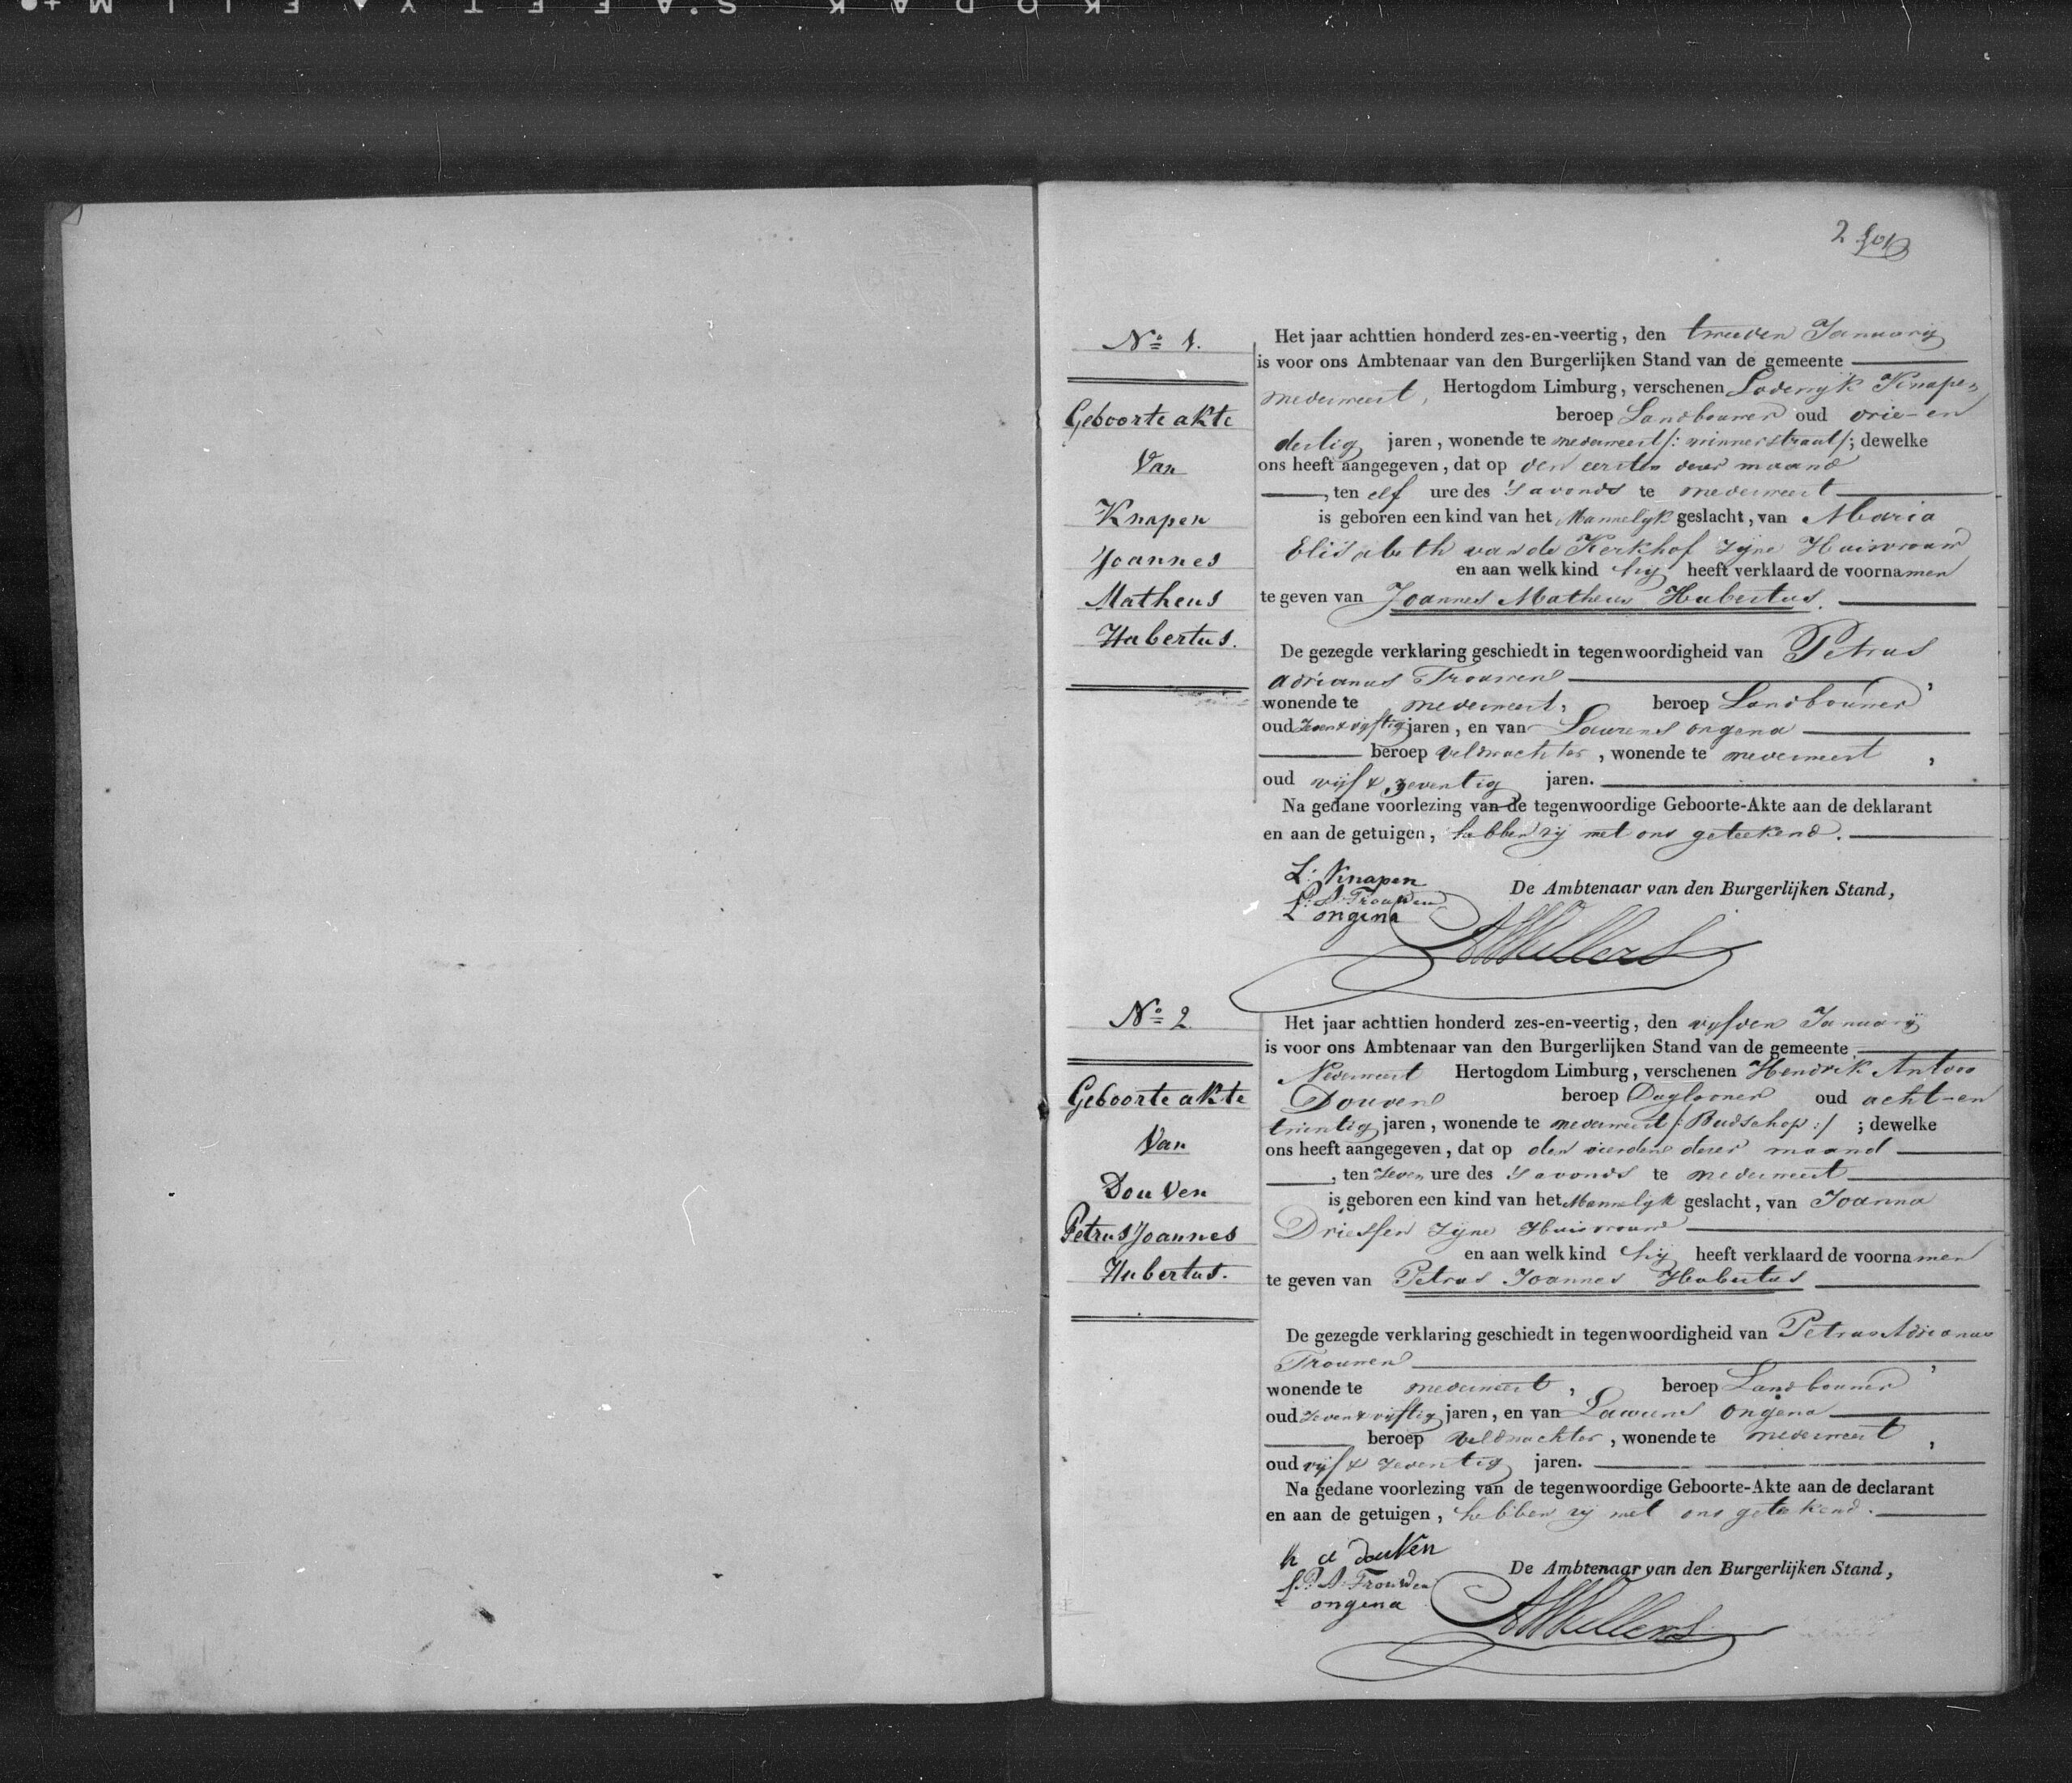 KODAK SAFETY FILM
2
Nº 1.
Geboorte akte
Van
Knapen
Joannes
Matheus
Hubertus.
Het jaar achttien honderd zes-en-veertig, den tweeden Januarij
is voor ons Ambtenaar van den Burgerlijken Stand van de gemeente
Nederweert, Hertogdom Limburg, verschenen Lodewyk Knapen
beroep Landbouwer oud drie-en
dertig jaren, wonende te nederweert /: winnerstraat /; dewelke
ons heeft aangegeven, dat op den eersten dezer maand
, ten elf ure des 's avonds te nederweert
is geboren een kind van het Mannelyk geslacht, van Maria
Elisabeth van de Kerkhof zyne Huisvrouw
en aan welk kind hij heeft verklaard de voornamen
te geven van Joannes Matheus Hubertus.
De gezegde verklaring geschiedt in tegenwoordigheid van Petrus
Adrianus Trouwen,
wonende te nederweert, beroep Landbouwer
oud zeven & vijftig jaren, en van Laurens ongena
beroep veldwachter, wonende te nederweert,
oud vijf & zeventig jaren.
Na gedane voorlezing van de tegenwoordige Geboorte-Akte aan de deklarant
en aan de getuigen, hebben zij met ons geteekend.
L: Knapen
P: A: Trouwen
L ongena
De Ambtenaar van den Burgerlijken Stand,
Nº 2.
Geboorte akte
Van
Douven
Petrus Joannes
Hubertus.
Het jaar achttien honderd zes-en-veertig, den vyfden Januarij
is voor ons Ambtenaar van den Burgerlijken Stand van de gemeente
Nederweert Hertogdom Limburg, verschenen Hendrik Antoon
Douven beroep Daglooner oud acht-en
twintig jaren, wonende te nederweert /: Budschop :/ ; dewelke
ons heeft aangegeven, dat op den vierden dezer maand
, ten zeven ure des 's avonds te nederweert
is geboren een kind van het Mannelyk geslacht, van Joanna
Driessen zyne Huisvrouw
en aan welk kind hij heeft verklaard de voornamen
te geven van Petrus Joannes Hubertus
De gezegde verklaring geschiedt in tegenwoordigheid van Petrus Adrianus
Trouwen,
wonende te nederweert, beroep Landbouwer
oud zeven & vijftig jaren, en van Laurens ongena
beroep veldwachter, wonende te nederweert,
oud vijf & zeventig jaren.
Na gedane voorlezing van de tegenwoordige Geboorte-Akte aan de declarant
en aan de getuigen, hebben zij met ons geteekend.
h a douven
P: A: Trouwen
L ongena
De Ambtenaar van den Burgerlijken Stand,